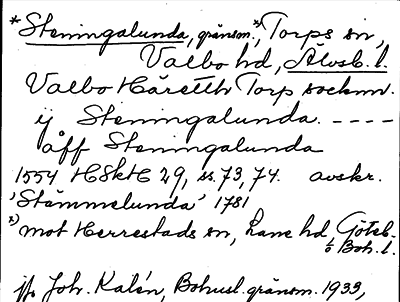 *Steningalunda, gränsm.,ˣ⁾ Torps sn,
Valbo hd, Älvsb. l.
Valbo Häretth Torp socknn.
ij Steningalunda. ----
åff Steningalunda
1554 HSkH 29, ss. 73, 74. avskr.
'Stämmelunda' 1781
ˣ⁾ mot Herrestads sn, Lane hd, Göteb.
o Boh. l.
jfr Joh. Kalén, Bohusl. gränsm. 1933,